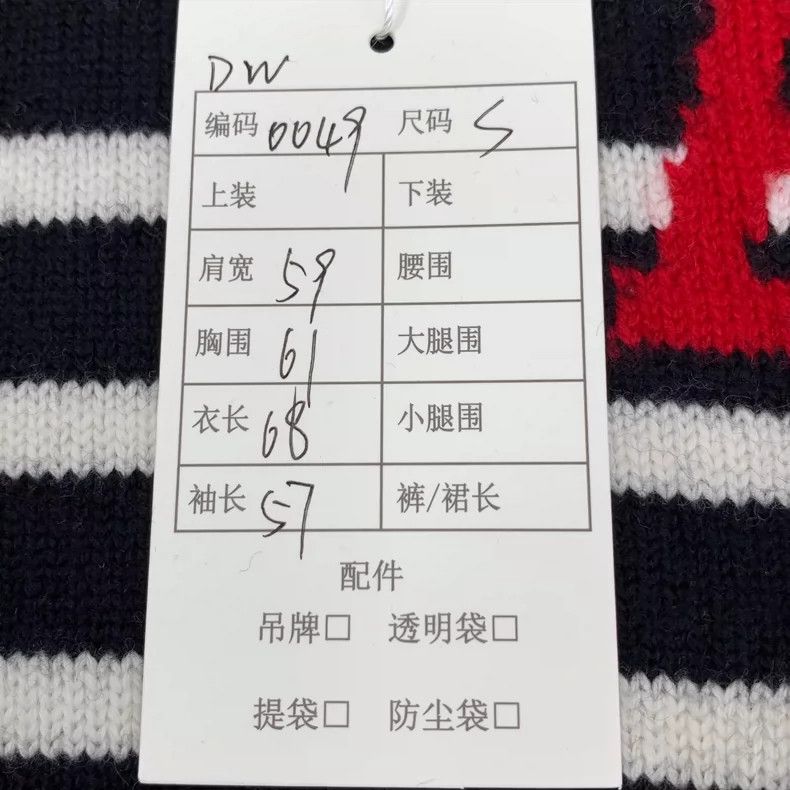 DW
编码 0049 尺码 S
上装 下装
肩宽 59 腰围
胸围 61 大腿围
衣长 68 小腿围
袖长 57 裤/裙长
配件
吊牌□ 透明袋□
提袋□ 防尘袋□